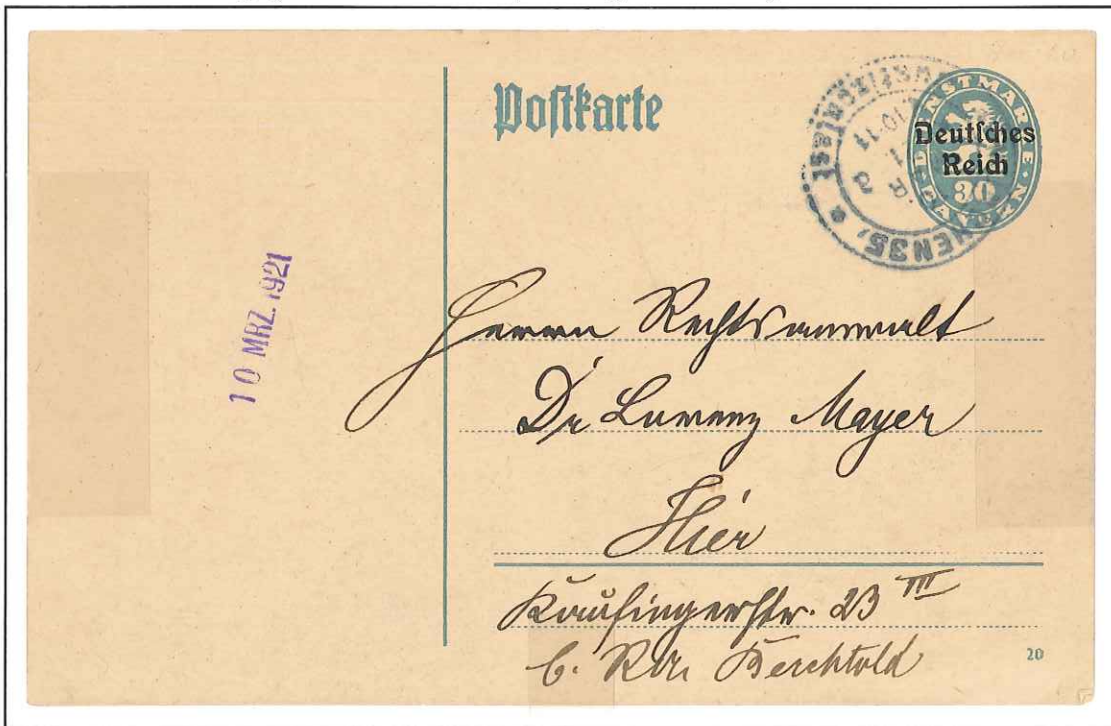 Postkarte
DIENSTMARKE
Deutsches
Reich
30
BAYERN
10 MRZ. 1921
Herrn Rechtsanwalt
Dr Lorenz Mayer
Hier
Kaufingerstr. 23 III
b. Berchtold
20